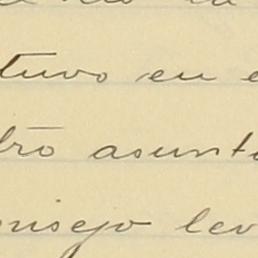 tuvo en e
tro asunto
onsejo lev